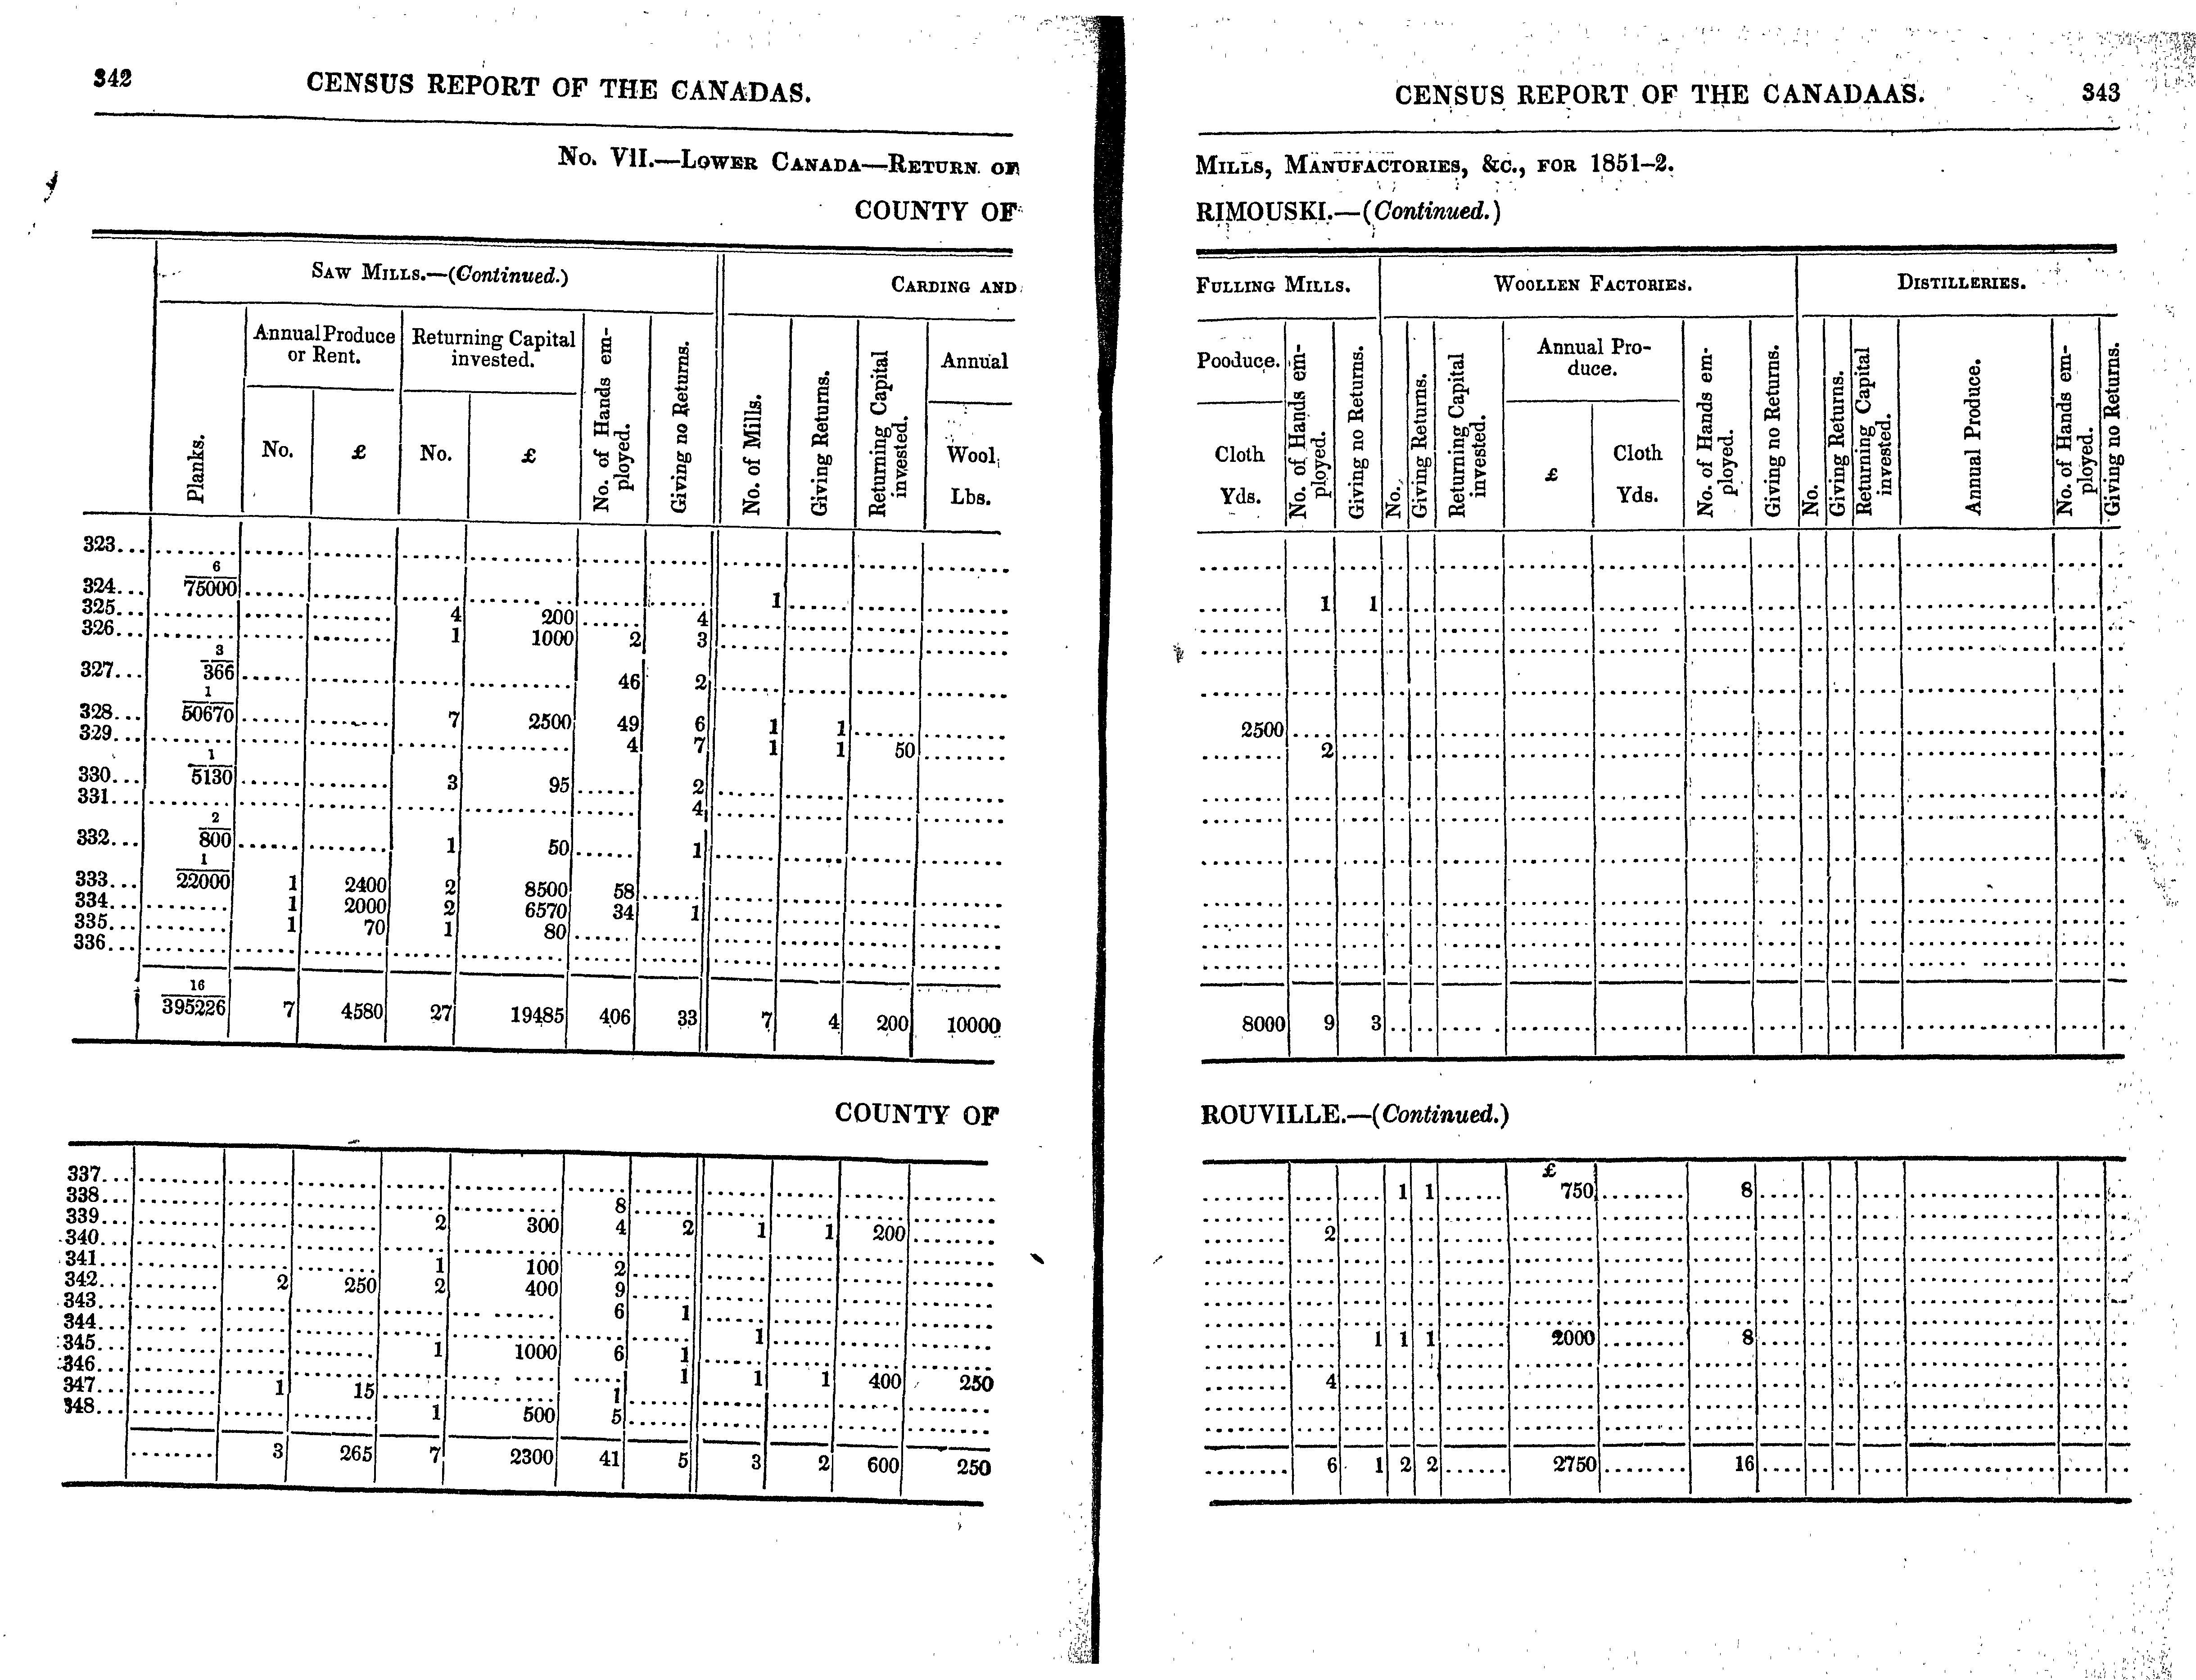 342 CENSUS REPORT OF THE CANADAS.
No. VII.—Lower Canada—Return of
COUNTY OF
Saw Mills.—(Continued.) Carding and
Planks. Annual Produce or Rent. Returning Capital invested. No. of Hands employed. Giving no Returns. No. of Mills. Giving Returns. Returning Capital invested. Annual
No. £ No. £ Wool, Lbs.
323
6
324 75000 1
325 4 200 4
326 1 1000 2 3
3
327 366 46 2
1
328 50670 7 2500 49 6 1 1
329 4 7 1 1 50
1
330 5130 3 95 2
331 4
2
332 800 1 50 1
1
333 22000 1 2400 2 8500 58
334 1 2000 2 6570 34 1
335 1 70 1 80
336
16
395226 7 4580 27 19485 406 33 7 4 200 10000
COUNTY OF
337
338 8
339 2 300 4 2 1 1 200
340
341 1 100 2
342 2 250 2 400 9
343 6 1
344 1
345 1 1000 6 1
346 1 1 1 400 250
347 1 15 1
348 1 500 5
3 265 7 2300 41 5 3 2 600 250
CENSUS REPORT OF THE CANADAAS. 343
Mills, Manufactories, &c., for 1851–2.
RIMOUSKI.—(Continued.)
Fulling Mills. Woollen Factories. Distilleries.
Pooduce. No. of Hands employed. Giving no Returns. No. Giving Returns. Returning Capital invested. Annual Produce. No. of Hands employed. Giving no Returns. No. Giving Returns. Returning Capital invested. Annual Produce. No. of Hands employed. Giving no Returns.
Cloth Yds. £ Cloth Yds.
1 1
2500
2
8000 9 3
ROUVILLE.—(Continued.)
£
1 1 750 8
2
1 1 1 2000 8
4
6 1 2 2 2750 16